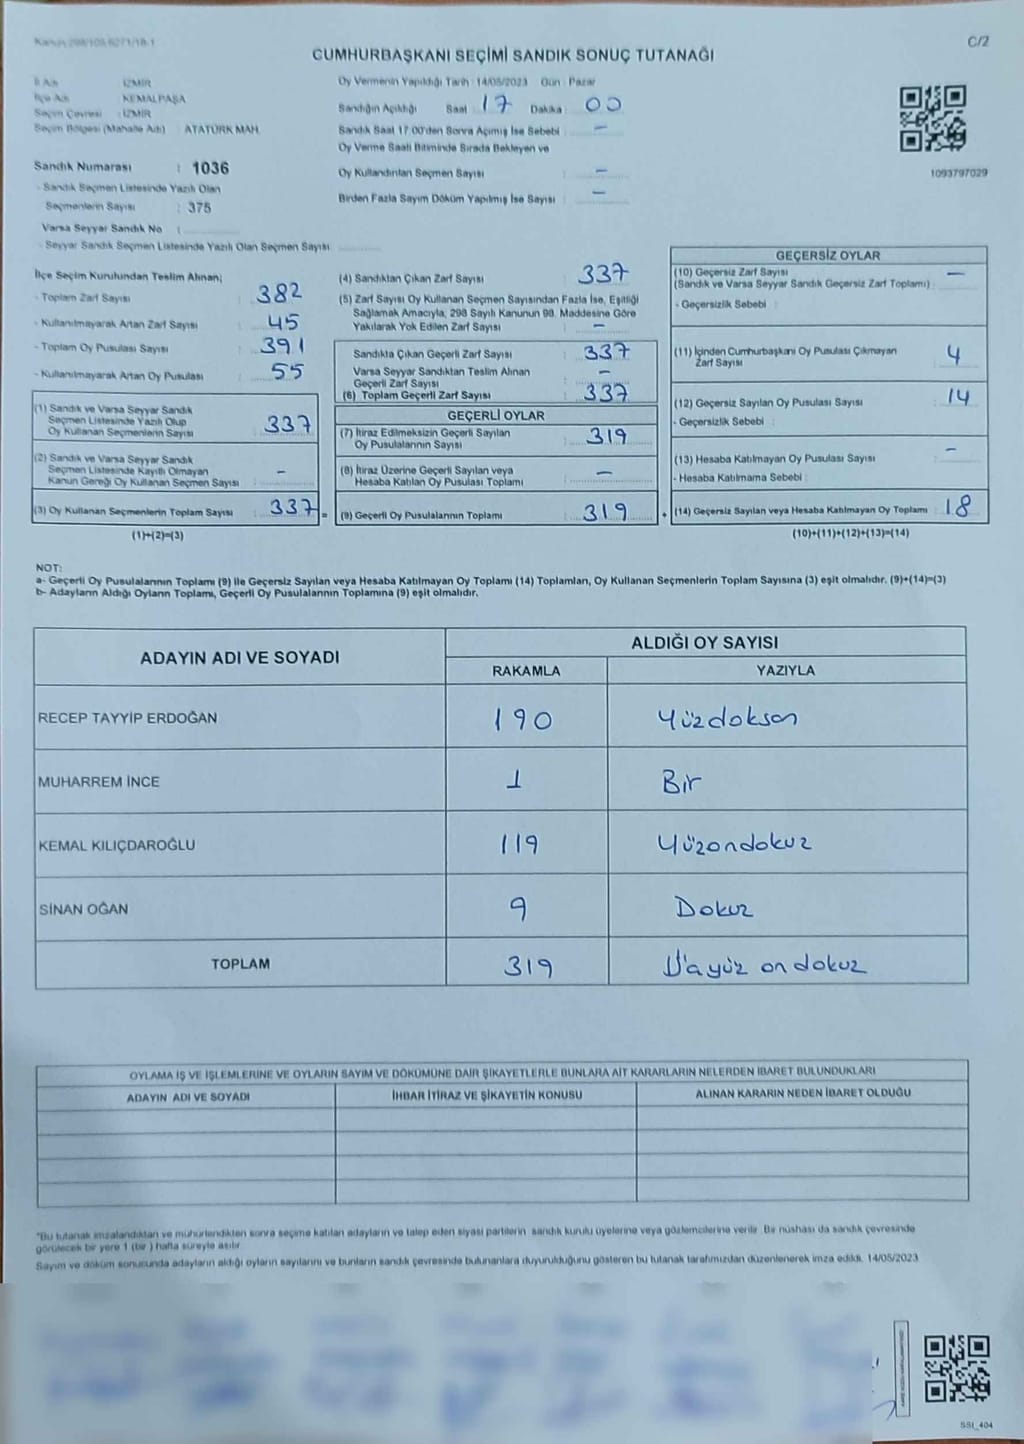 Kanun 298/105-6271/18-1
C/2
CUMHURBAŞKANI SEÇİMİ SANDIK SONUÇ TUTANAĞI
İl Adı : İZMİR
İlçe Adı : KEMALPAŞA
Seçim Çevresi : İZMİR
Seçim Bölgesi (Mahalle Adı) : ATATÜRK MAH.
Sandık Numarası : 1036
- Sandık Seçmen Listesinde Yazılı Olan
Seçmenlerin Sayısı : 375
Varsa Seyyar Sandık No :
- Seyyar Sandık Seçmen Listesinde Yazılı Olan Seçmen Sayısı
Oy Vermenin Yapıldığı Tarih : 14/05/2023 Gün : Pazar
Sandığın Açıldığı Saat : 17 Dakika : 00
Sandık Saat 17:00'den Sonra Açımış İse Sebebi : —
Oy Verme Saati Bitiminde Sırada Bekleyen ve
Oy Kullandırılan Seçmen Sayısı : —
Birden Fazla Sayım Döküm Yapılmış İse Sayısı : —
1093797029
İlçe Seçim Kurulundan Teslim Alınan;
- Toplam Zarf Sayısı : 382
- Kullanılmayarak Artan Zarf Sayısı : 45
- Toplam Oy Pusulası Sayısı : 391
- Kullanılmayarak Artan Oy Pusulası : 55
(1) Sandık ve Varsa Seyyar Sandık
Seçmen Listesinde Yazılı Olup
Oy Kullanan Seçmenlerin Sayısı : 337
(2) Sandık ve Varsa Seyyar Sandık
Seçmen Listesinde Kayıtlı Olmayan
Kanun Gereği Oy Kullanan Seçmen Sayısı : -
(3) Oy Kullanan Seçmenlerin Toplam Sayısı : 337 =
(1)+(2)=(3)
(4) Sandıktan Çıkan Zarf Sayısı : 337
(5) Zarf Sayısı Oy Kullanan Seçmen Sayısından Fazla İse, Eşitliği
Sağlamak Amacıyla, 298 Sayılı Kanunun 98. Maddesine Göre
Yakılarak Yok Edilen Zarf Sayısı : —
Sandıkta Çıkan Geçerli Zarf Sayısı : 337
Varsa Seyyar Sandıktan Teslim Alınan
Geçerli Zarf Sayısı : —
(6) Toplam Geçerli Zarf Sayısı : 337
GEÇERLİ OYLAR
(7) İtiraz Edilmeksizin Geçerli Sayılan
Oy Pusulalarının Sayısı : 319
(8) İtiraz Üzerine Geçerli Sayılan veya
Hesaba Katılan Oy Pusulası Toplamı : —
(9) Geçerli Oy Pusulalarının Toplamı : 319 +
GEÇERSİZ OYLAR
(10) Geçersiz Zarf Sayısı
(Sandık ve Varsa Seyyar Sandık Geçersiz Zarf Toplamı) : —
- Geçersizlik Sebebi :
(11) İçinden Cumhurbaşkanı Oy Pusulası Çıkmayan
Zarf Sayısı : 4
(12) Geçersiz Sayılan Oy Pusulası Sayısı : 14
- Geçersizlik Sebebi :
(13) Hesaba Katılmayan Oy Pusulası Sayısı : —
- Hesaba Katılmama Sebebi :
(14) Geçersiz Sayılan veya Hesaba Katılmayan Oy Toplamı : 18
(10)+(11)+(12)+(13)=(14)
NOT:
a- Geçerli Oy Pusulalarının Toplamı (9) ile Geçersiz Sayılan veya Hesaba Katılmayan Oy Toplamı (14) Toplamları, Oy Kullanan Seçmenlerin Toplam Sayısına (3) eşit olmalıdır. (9)+(14)=(3)
b- Adayların Aldığı Oyların Toplamı, Geçerli Oy Pusulalarının Toplamına (9) eşit olmalıdır.
ADAYIN ADI VE SOYADI
ALDIĞI OY SAYISI
RAKAMLA YAZIYLA
RECEP TAYYİP ERDOĞAN 190 Yüzdoksan
MUHARREM İNCE 1 Bir
KEMAL KILIÇDAROĞLU 119 Yüzondokuz
SİNAN OĞAN 9 Dokuz
TOPLAM 319 Üçyüz on dokuz
OYLAMA İŞ VE İŞLEMLERİNE VE OYLARIN SAYIM VE DÖKÜMÜNE DAİR ŞİKAYETLERLE BUNLARA AİT KARARLARIN NELERDEN İBARET BULUNDUKLARI
ADAYIN ADI VE SOYADI İHBAR İTİRAZ VE ŞİKAYETİN KONUSU ALINAN KARARIN NEDEN İBARET OLDUĞU
"Bu tutanak imzalandıktan ve mühürlendikten sonra seçime katılan adayların ve talep eden siyasi partilerin sandık kurulu üyelerine veya gözlemcilerine verilir. Bir nüshası da sandık çevresinde
görülecek bir yere 1 (bir ) hafta süreyle asılır.
Sayım ve döküm sonucunda adayların aldığı oyların sayılarını ve bunların sandık çevresinde bulunanlara duyurulduğunu gösteren bu tutanak tarafımızdan düzenlenerek imza edildi. 14/05/2023
SSI_404